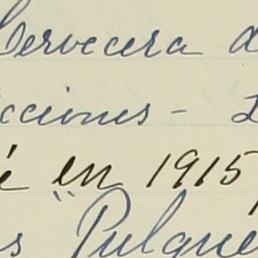 Cervecera d
cciones -
é en 1915
s "Pulque